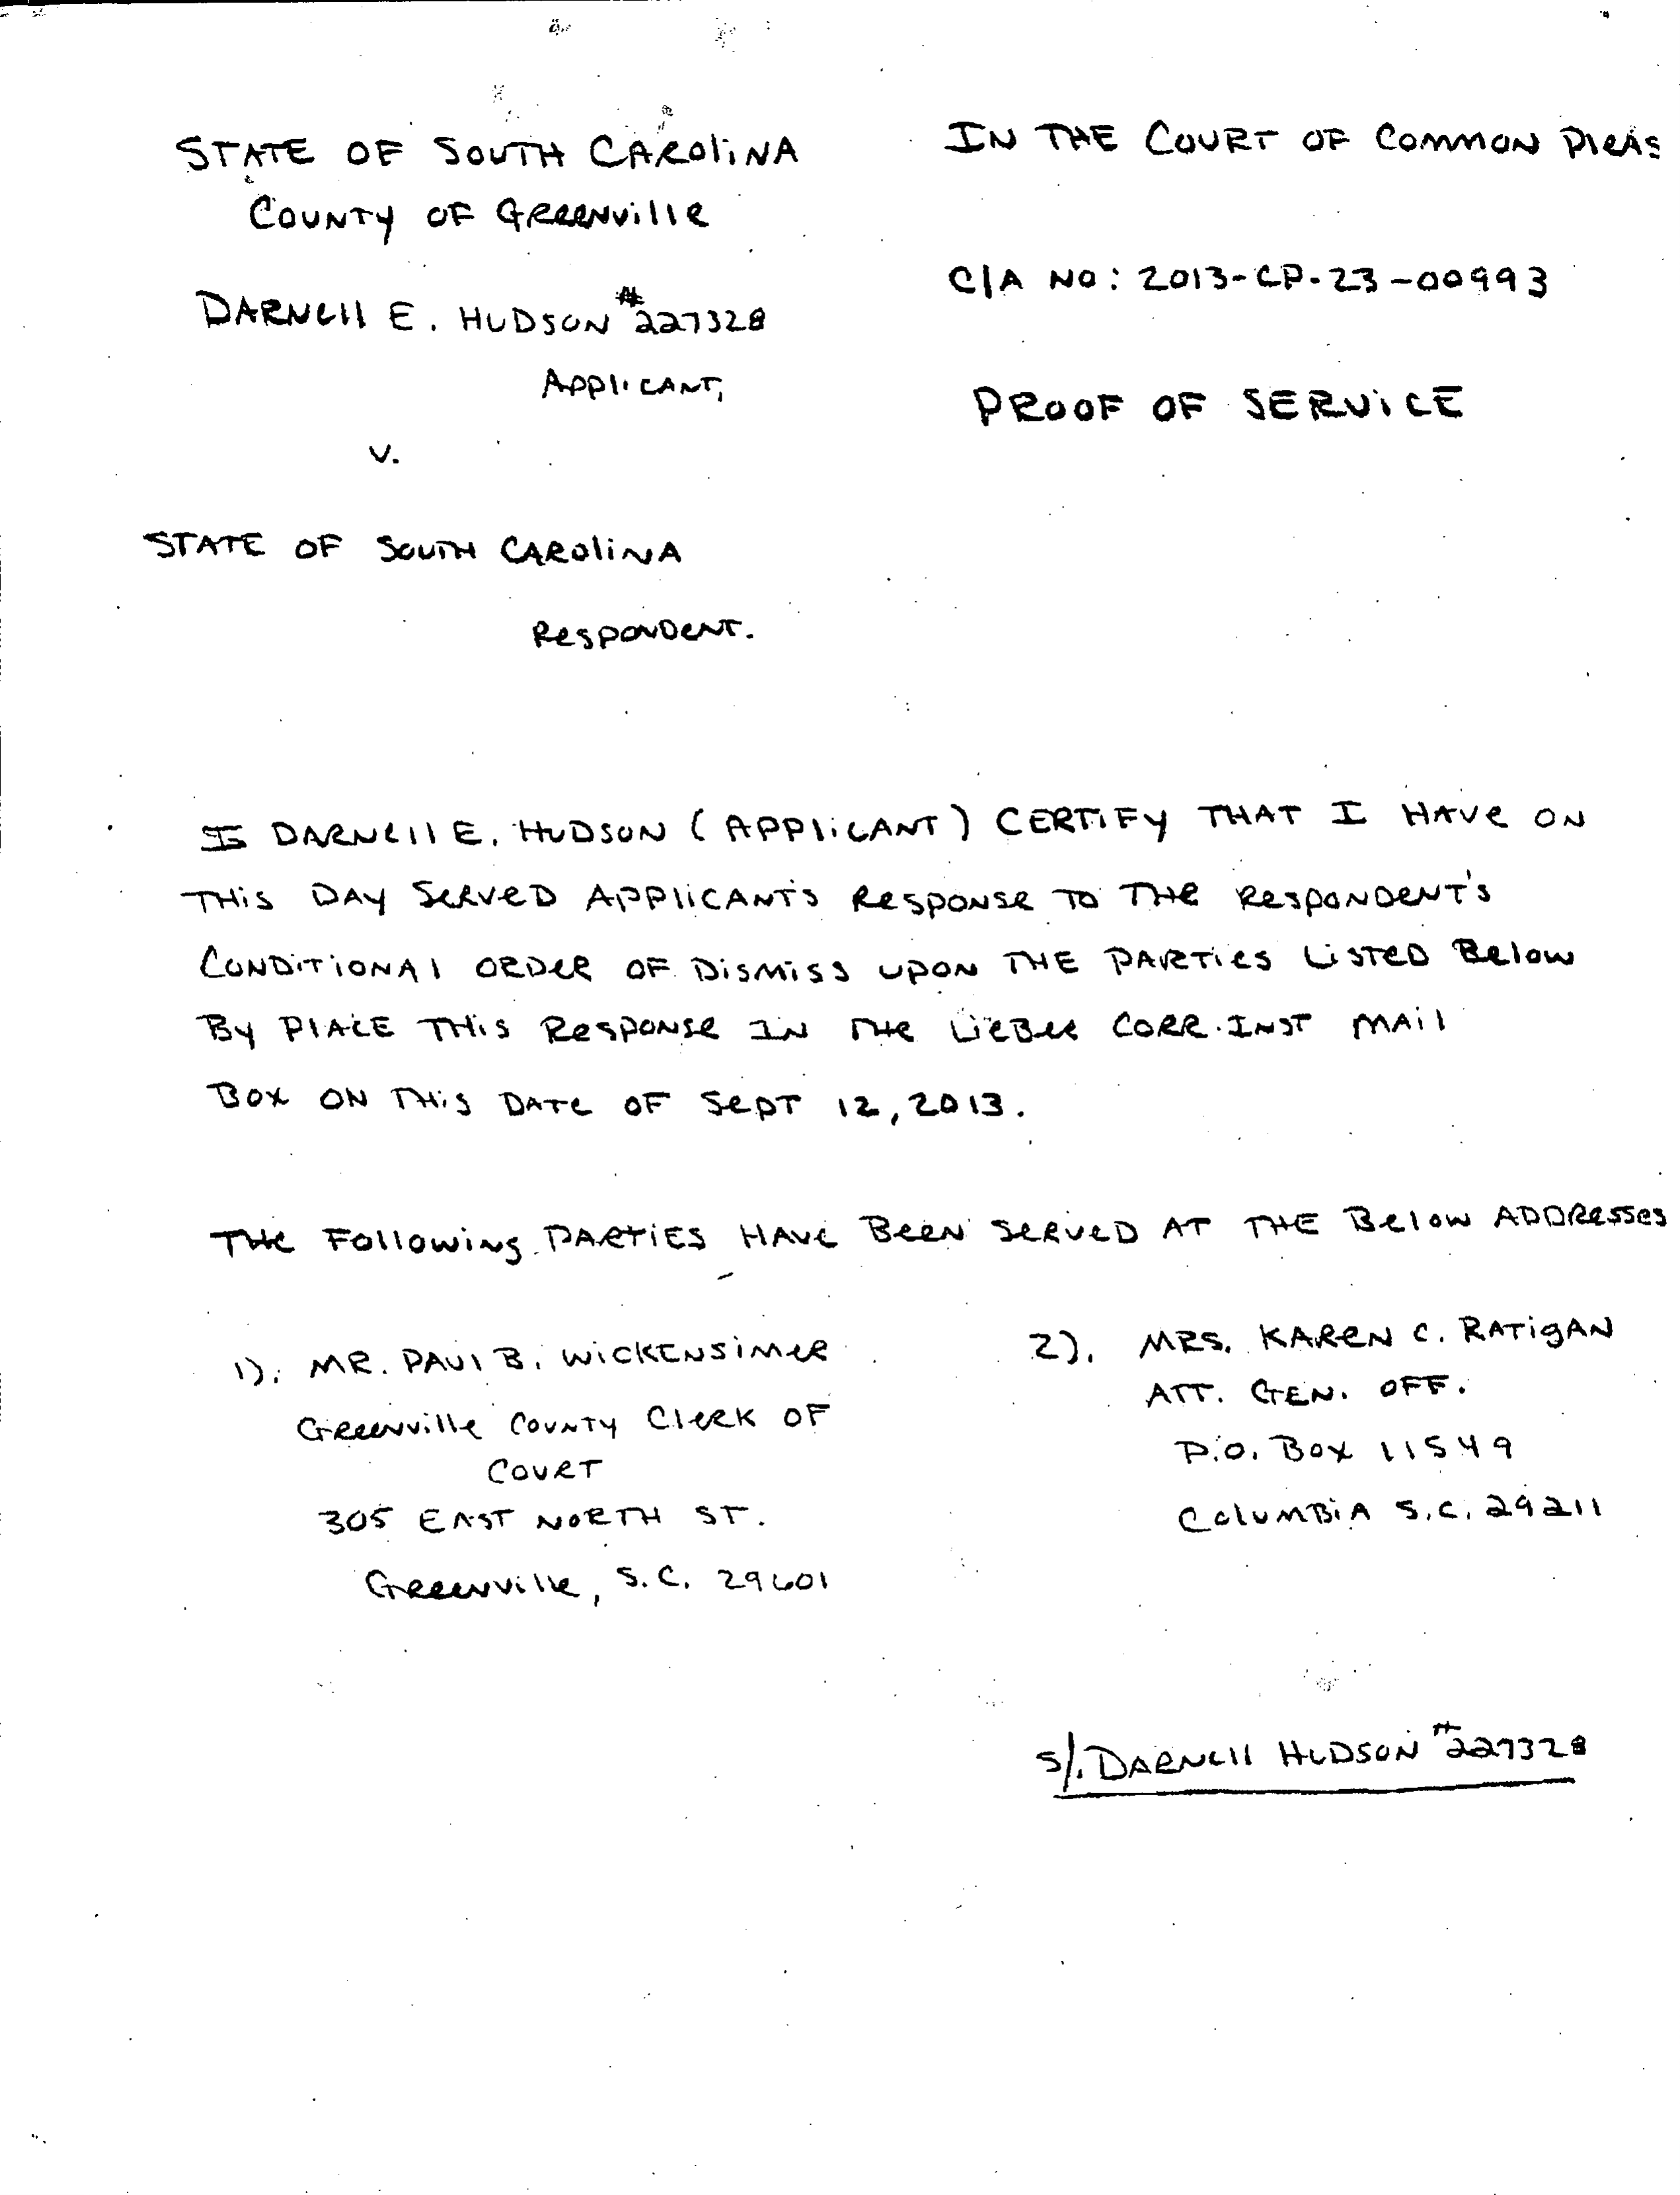 STATE OF SOUTH CAROLINA
COUNTY OF GREENVILLE
IN THE COURT OF COMMON PLEAS
C/A NO: 2013-CP-23-00993
DARNELL E. HUDSON #227328
APPLICANT,
PROOF OF SERVICE
V.
STATE OF SOUTH CAROLINA
RESPONDENT.
I, DARNELL E. HUDSON (APPLICANT) CERTIFY THAT I HAVE ON
THIS DAY SERVED APPLICANT'S RESPONSE TO THE RESPONDENT'S
CONDITIONAL ORDER OF DISMISS UPON THE PARTIES LISTED BELOW
BY PLACE THIS RESPONSE IN THE LIEBER CORR. INST MAIL
BOX ON THIS DATE OF SEPT 12, 2013.
THE FOLLOWING PARTIES HAVE BEEN SERVED AT THE BELOW ADDRESSES
1). MR. PAUL B. WICKENSIMER
GREENVILLE COUNTY CLERK OF
COURT
305 EAST NORTH ST.
GREENVILLE, S.C. 29601
2). MRS. KAREN C. RATIGAN
ATT. GEN. OFF.
P.O. BOX 11549
COLUMBIA S.C. 29211
S/. DARNELL HUDSON #227328